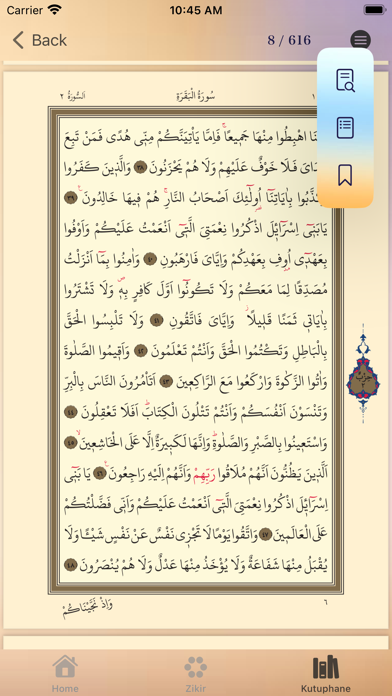 Carrier 10:45 AM
Back 8 / 616
اَلسُّورَةُ ٢ سُورَةُ الْبَقَرَةِ ١
نَا اهْبِطُوا مِنْهَا جَمِيعًاۚ فَاِمَّا يَأْتِيَنَّكُمْ مِنّ۪ى هُدًى فَمَنْ تَبِعَ
دَاىَ فَلَا خَوْفٌ عَلَيْهِمْ وَلَا هُمْ يَحْزَنُونَ ٣٨ وَالَّذ۪ينَ كَفَرُوا
كَذَّبُوا بِاٰيَاتِنَٓا اُو۬لٰٓئِكَ اَصْحَابُ النَّارِۚ هُمْ ف۪يهَا خَالِدُونَ ٣٩
يَابَن۪ٓى اِسْرَٓائ۪لَ اذْكُرُوا نِعْمَتِىَ الَّت۪ٓى اَنْعَمْتُ عَلَيْكُمْ وَاَوْفُوا
بِعَهْد۪ٓى اُو۫فِ بِعَهْدِكُمْ وَاِيَّاىَ فَارْهَبُونِ ٤٠ وَاٰمِنُوا بِمَٓا اَنْزَلْتُ
مُصَدِّقًا لِمَا مَعَكُمْ وَلَا تَكُونُٓوا اَوَّلَ كَافِرٍ بِه۪ۖ وَلَا تَشْتَرُوا
بِاٰيَات۪ى ثَمَنًا قَل۪يلًاۘ وَاِيَّاىَ فَاتَّقُونِ ٤١ وَلَا تَلْبِسُوا الْحَقَّ
بِالْبَاطِلِ وَتَكْتُمُوا الْحَقَّ وَاَنْتُمْ تَعْلَمُونَ ٤٢ وَاَق۪يمُوا الصَّلٰوةَ
وَاٰتُوا الزَّكٰوةَ وَارْكَعُوا مَعَ الرَّاكِع۪ينَ ٤٣ اَتَأْمُرُونَ النَّاسَ بِالْبِرِّ
وَتَنْسَوْنَ اَنْفُسَكُمْ وَاَنْتُمْ تَتْلُونَ الْكِتَابَۜ اَفَلَا تَعْقِلُونَ ٤٤
وَاسْتَع۪ينُوا بِالصَّبْرِ وَالصَّلٰوةِۜ وَاِنَّهَا لَكَب۪يرَةٌ اِلَّا عَلَى الْخَاشِع۪ينَۙ ٤٥
اَلَّذ۪ينَ يَظُنُّونَ اَنَّهُمْ مُلَاقُوا رَبِّهِمْ وَاَنَّهُمْ اِلَيْهِ رَاجِعُونَ۟ ٤٦ يَا بَن۪ٓى
اِسْرَٓائ۪لَ اذْكُرُوا نِعْمَتِىَ الَّت۪ٓى اَنْعَمْتُ عَلَيْكُمْ وَاَنّ۪ى فَضَّلْتُكُمْ
عَلَى الْعَالَم۪ينَ ٤٧ وَاتَّقُوا يَوْمًا لَا تَجْز۪ى نَفْسٌ عَنْ نَفْسٍ شَيْـًٔا وَلَا
يُقْبَلُ مِنْهَا شَفَاعَةٌ وَلَا يُؤْخَذُ مِنْهَا عَدْلٌ وَلَا هُمْ يُنْصَرُونَ ٤٨
وَاِذْ نَجَّيْنَاكُمْ ٦
Home Zikir Kutuphane